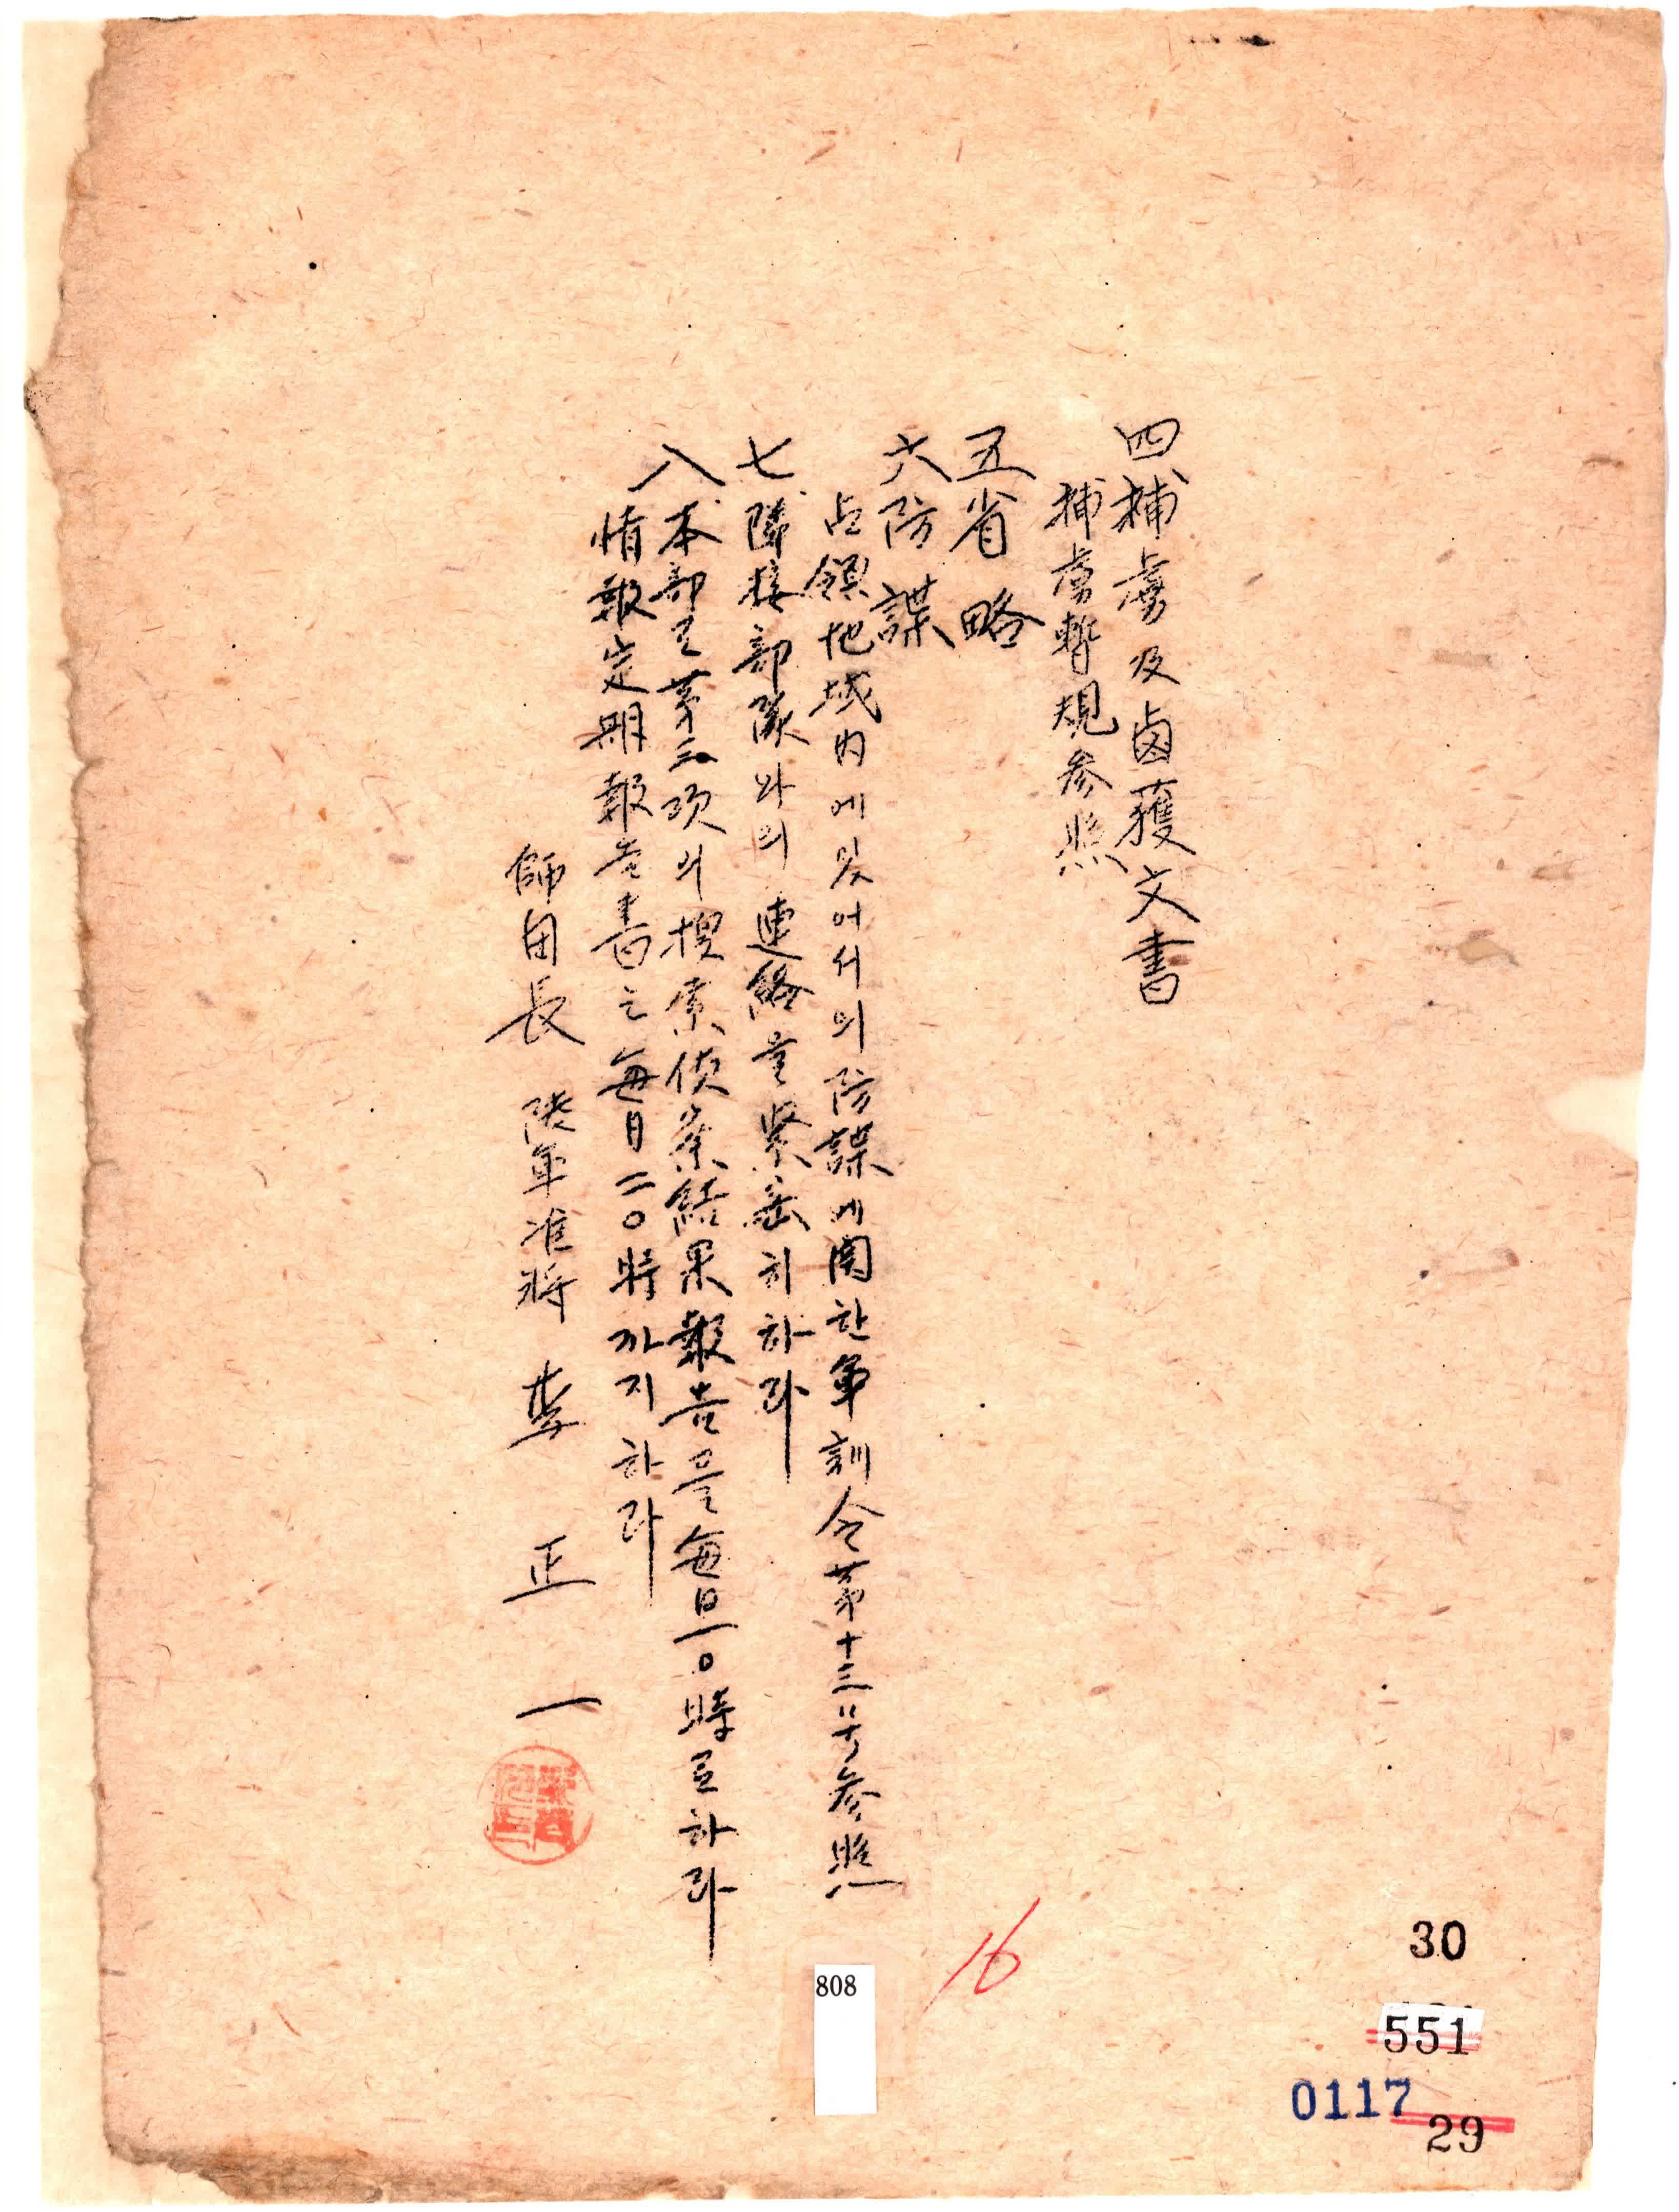 四 捕虜及鹵獲文書
捕虜暫規参照
五 省略
六 防諜
占領地域内에있어서의防諜에関한軍訓令第十三号参照
七 隣接部隊와의連絡을緊密히하라
八 本部로第三項의捜索偵察結果報告를每日一〇時로하라
情報定期報告書는每日二〇時까지하라
師団長 陸軍准將 李正一
16
808
30
551
0117
29